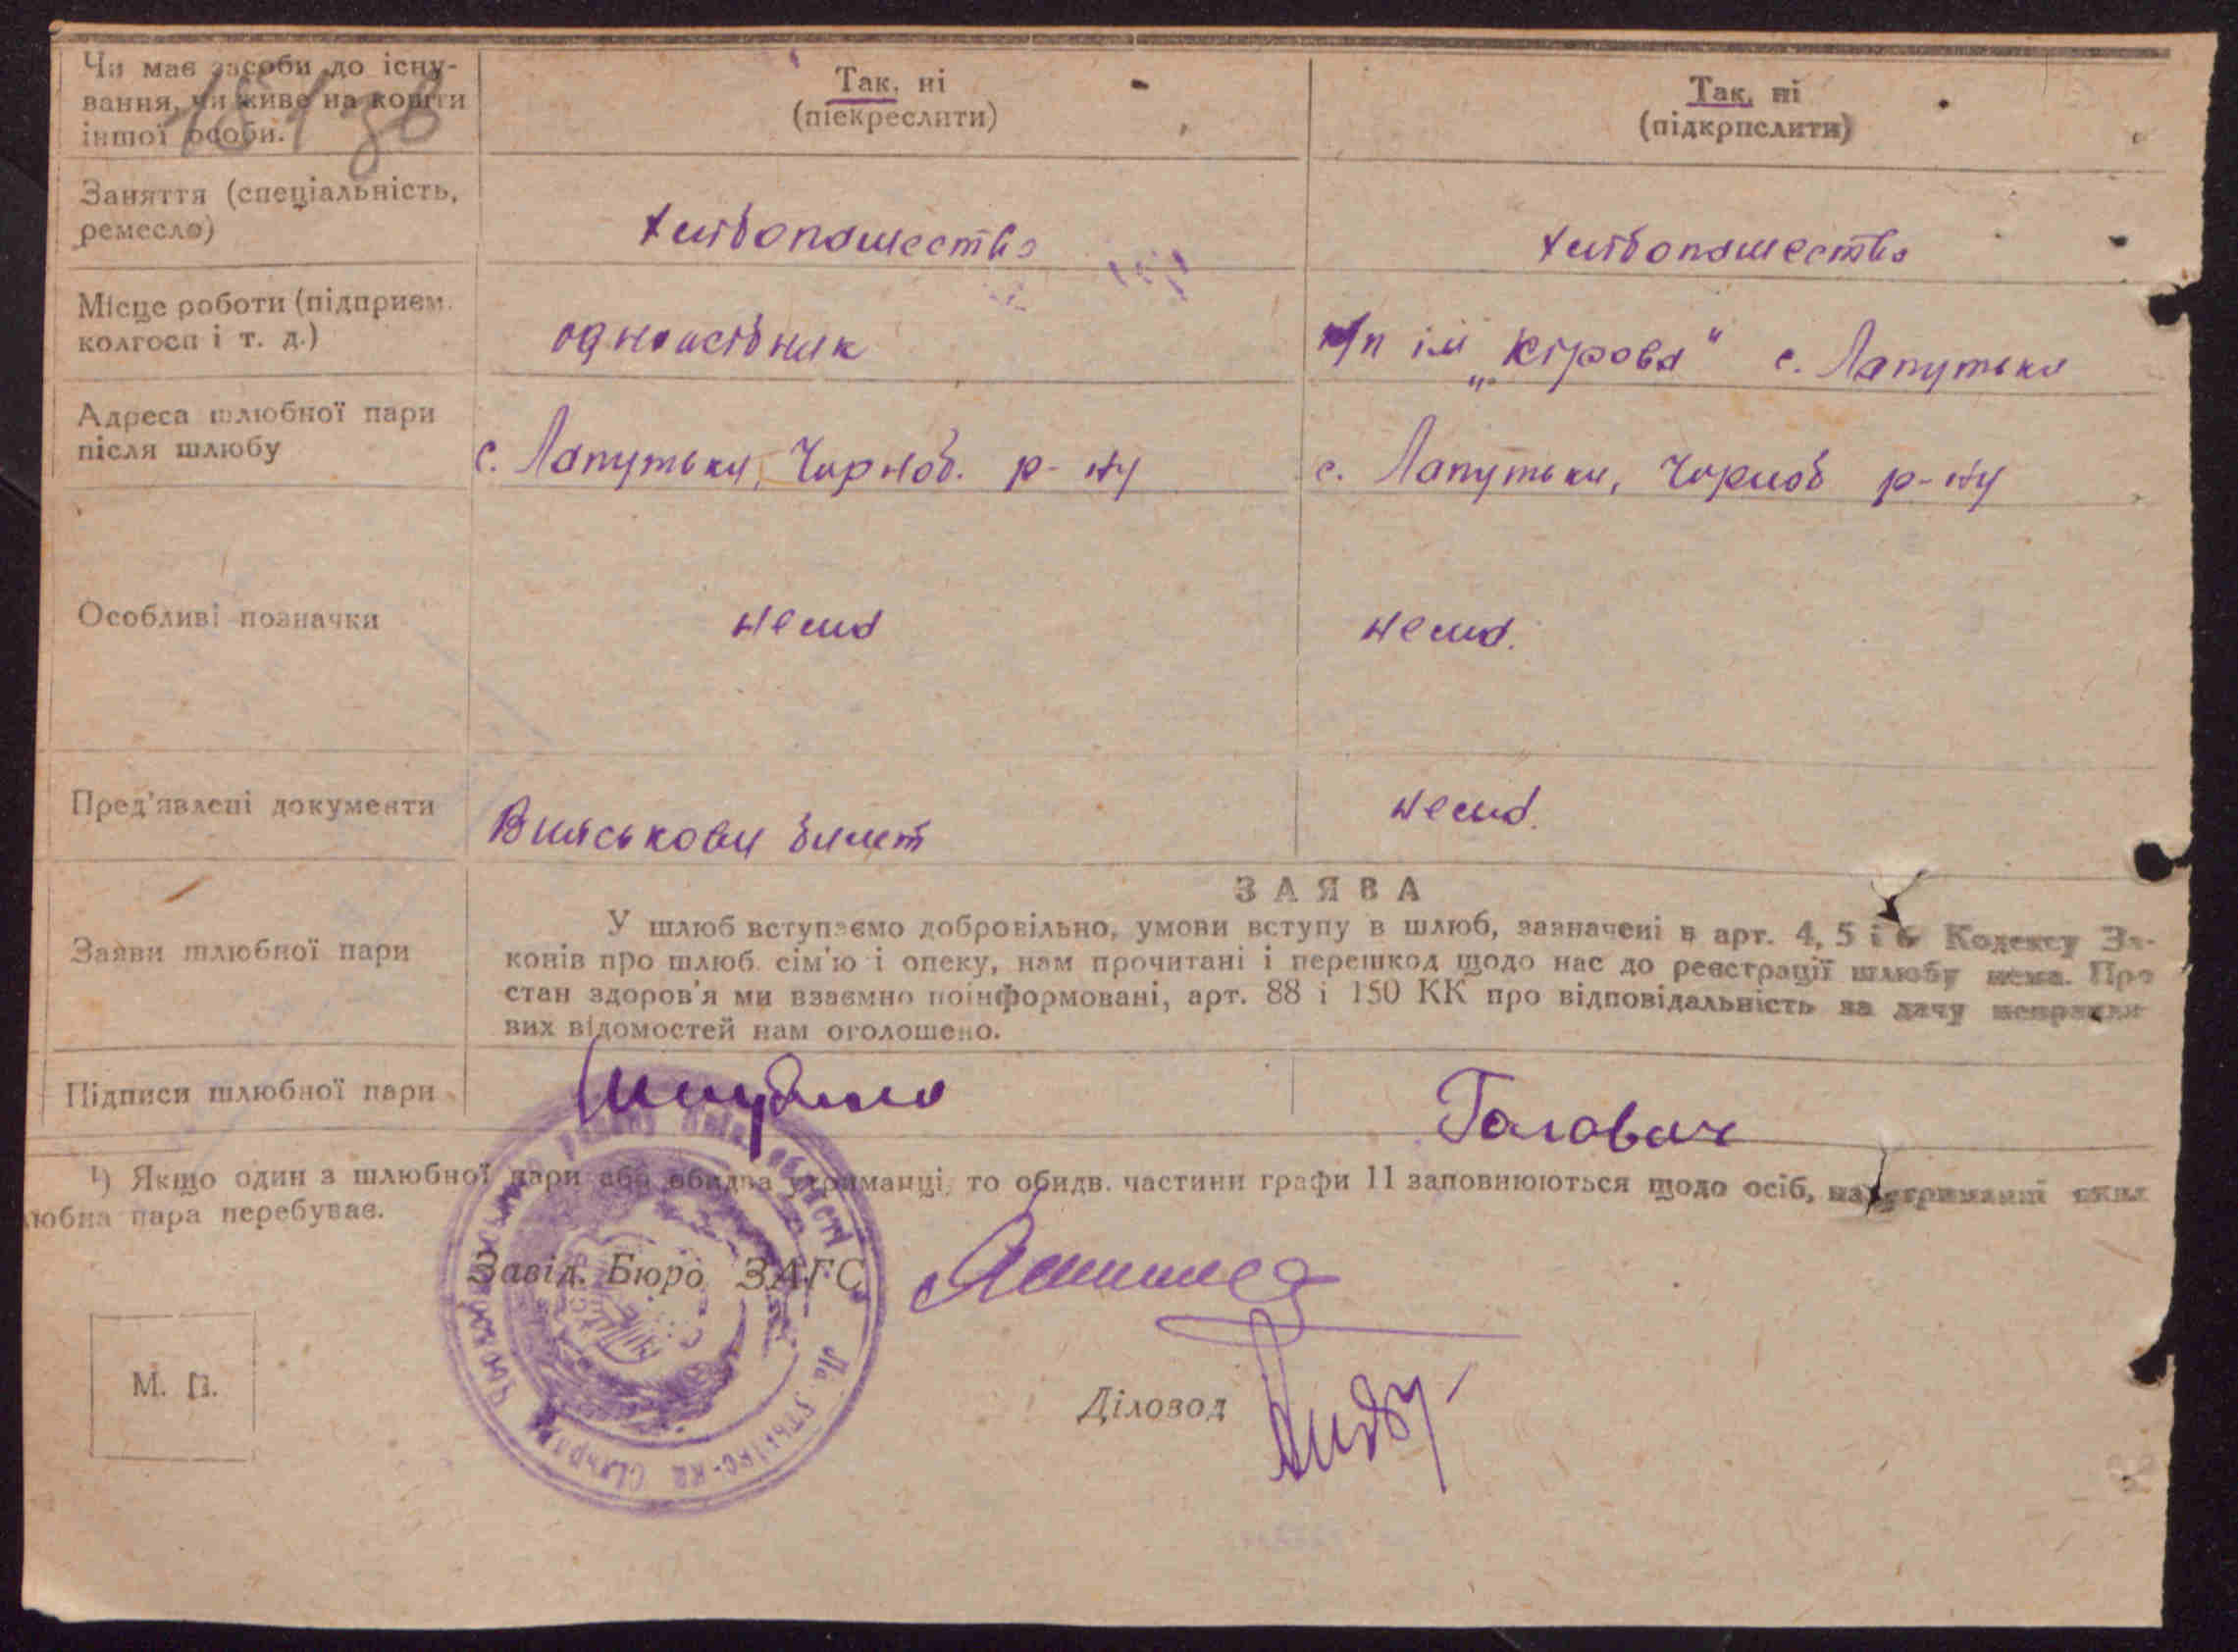 Чи має засоби до існу-
вання, чи живе на кошти
іншої особи.
Так, ні
(піекреслити)
Так, ні
(підкрпслити)
Заняття (спеціальність,
ремесло)
хлібопашество
хлібопашество
Місце роботи (підприєм.
колгосп і т. д.)
одноосібник
к/п ім „Кірова" с. Лапутьки
Адреса шлюбної пари
після шлюбу
с. Лапутьки, Чорноб. р-ну
с. Лапутьки, Чорноб р-ну
Особливі позначки
нема
нема.
Пред'явлені документи
Вииськови билет
нема.
ЗАЯВА
Заяви шлюбної пари
У шлюб вступаємо добровільно, умови вступу в шлюб, зазначені в арт. 4, 5 і 6 Кодексу За-
конів про шлюб. сім'ю і опеку, нам прочитані і перешкод щодо нас до реєстрації шлюбу нема. Про
стан здоров'я ми взаємно поінформовані, арт. 88 і 150 КК про відповідальність за дачу неправди
вих відомостей нам оголошено.
Підписи шлюбної пари
Головач
¹) Якщо один з шлюбної пари або обидва утриманці, то обидв. частини графи 11 заповнюються щодо осіб, на утриманні яких
любна пара перебуває.
Завід. Бюро ЗАГС
М. П.
Діловод